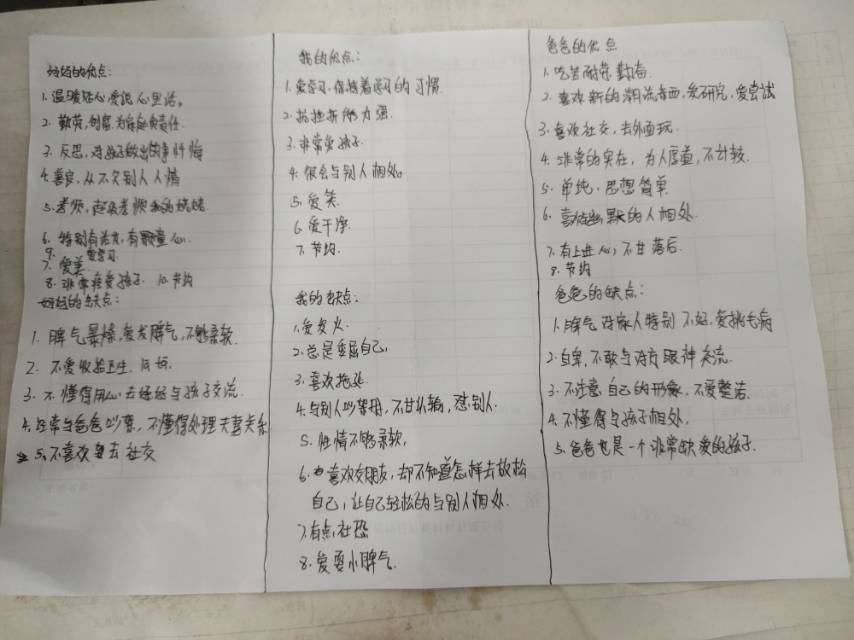 妈妈的优点：
1. 温暖贴心爱说心里话。
2. 勤劳，创富，为家庭负责任
3. 反思，对孩子做出的事忏悔
4. 善良，从不欠别人人情
5. 孝顺，
6. 特别有活力，有童心
9. 爱学习
7. 爱美
8. 非常疼爱孩子 10. 节约
妈妈的缺点：
1. 脾气暴燥，爱发脾气，不够柔软
2. 不爱收拾卫生
3. 不懂得用心去经与孩子交流
4. 经常与爸爸吵架，不懂得处理夫妻关系
5. 不喜欢去社交
我的优点：
1. 爱学习，保持着学习的习惯
2. 抗挫折能力强
3. 非常爱孩子
4. 很会与别人相处。
5. 爱笑
6. 爱干净
7. 节约
我的缺点：
1. 爱发火
2. 总是委屈自己，
3. 喜欢抱怨
4. 与别人吵架好，不甘认输，怼别人
5. 性情不够柔软，
6. 喜欢交朋友，却不知道怎样去放松
自己，让自己轻松的与别人相处.
7. 有点社恐
8. 爱耍小脾气.
爸爸的优点
1. 吃苦耐劳 勤奋
2. 喜欢新的潮流东西，爱研究，爱尝试
3. 喜欢社交，去外面玩.
4. 非常的实在，为人厚道，不计较.
5. 单纯，思想简单
6. 喜欢幽默的人相处.
7. 有上进心，不甘落后.
8. 节约
爸爸的缺点：
1. 脾气对家人特别不好，爱挑毛病
2. 自卑，不敢与对方眼神交流.
3. 不注意自己的形象，不爱整洁.
4. 不懂得与孩子相处，
5. 爸爸也是一个非常缺爱的孩子.